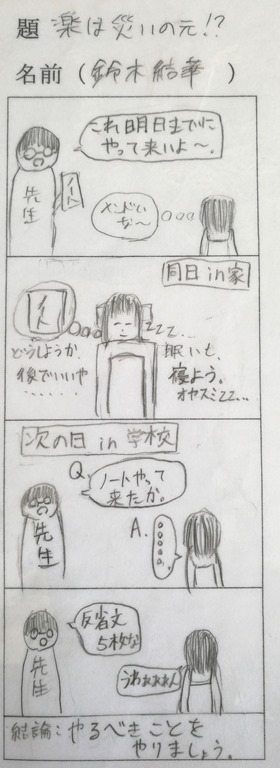 題 楽は災いの元!?
名前 (鈴木結華 )
これ明日までに
やって来いよ〜.
先生
ノート
メンドい
な〜
同日in家
ノート
zzz...
どうしようか、
後でいいや
......
眠いし、
寝よう。
オヤスミzz...
次の日 in 学校
Q.
ノートやって
来たか。
先生
A.
.....
反省文
5枚な
先生
うわぁぁぁん
結論:やるべきことを
やりましょう。